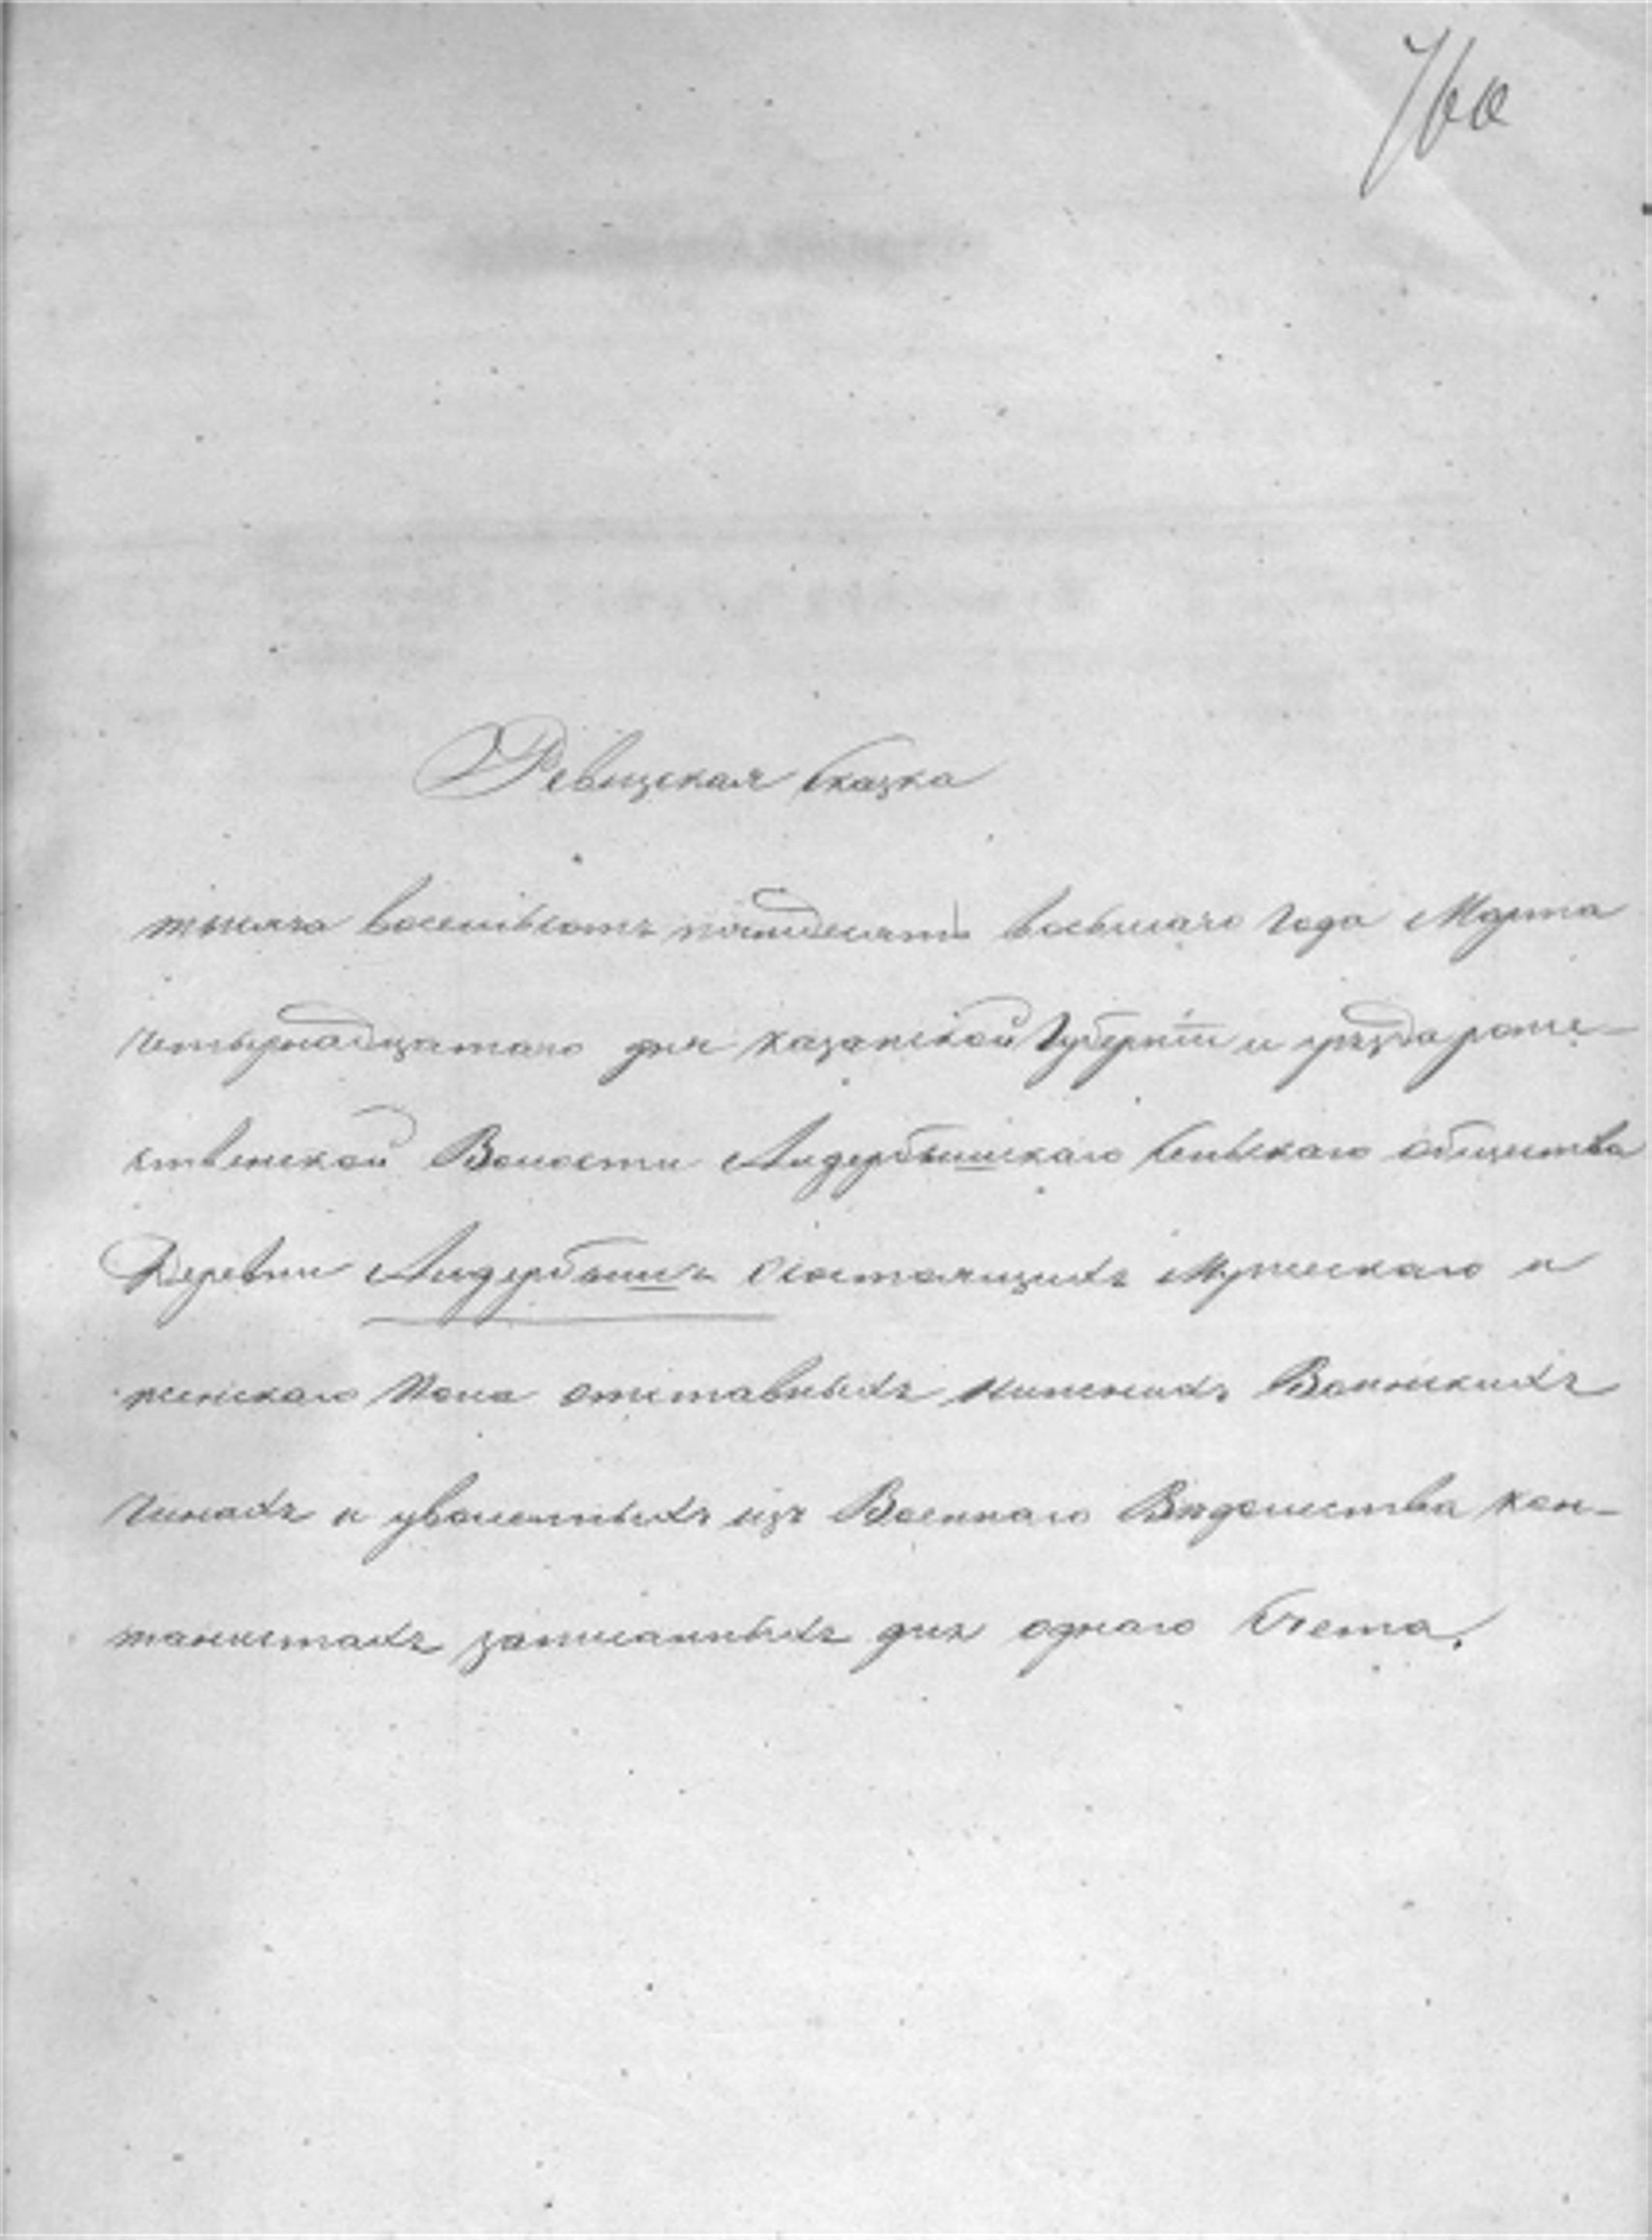 760
Ревизская Сказка
тысяча восемьсотъ пятидесятъ восьмаго Года Марта
четырнадцатаго дня Казанской Губерніи и уѣзда роже-
ственской Волости Андербышскаго Сельскаго общества
Деревни Андербышъ Состоящихъ Мужескаго и
женскаго Пола отставныхъ нижнихъ Воинскихъ
Чинахъ и уволенныхъ изъ Военнаго Вѣдомства кан-
танистахъ записанныхъ для однаго Счета.